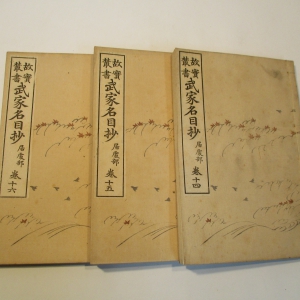 故實叢書
武家名目抄
居處部
卷十四
故實叢書
武家名目抄
居處部
卷十五
故實叢書
武家名目抄
居處部
卷十六